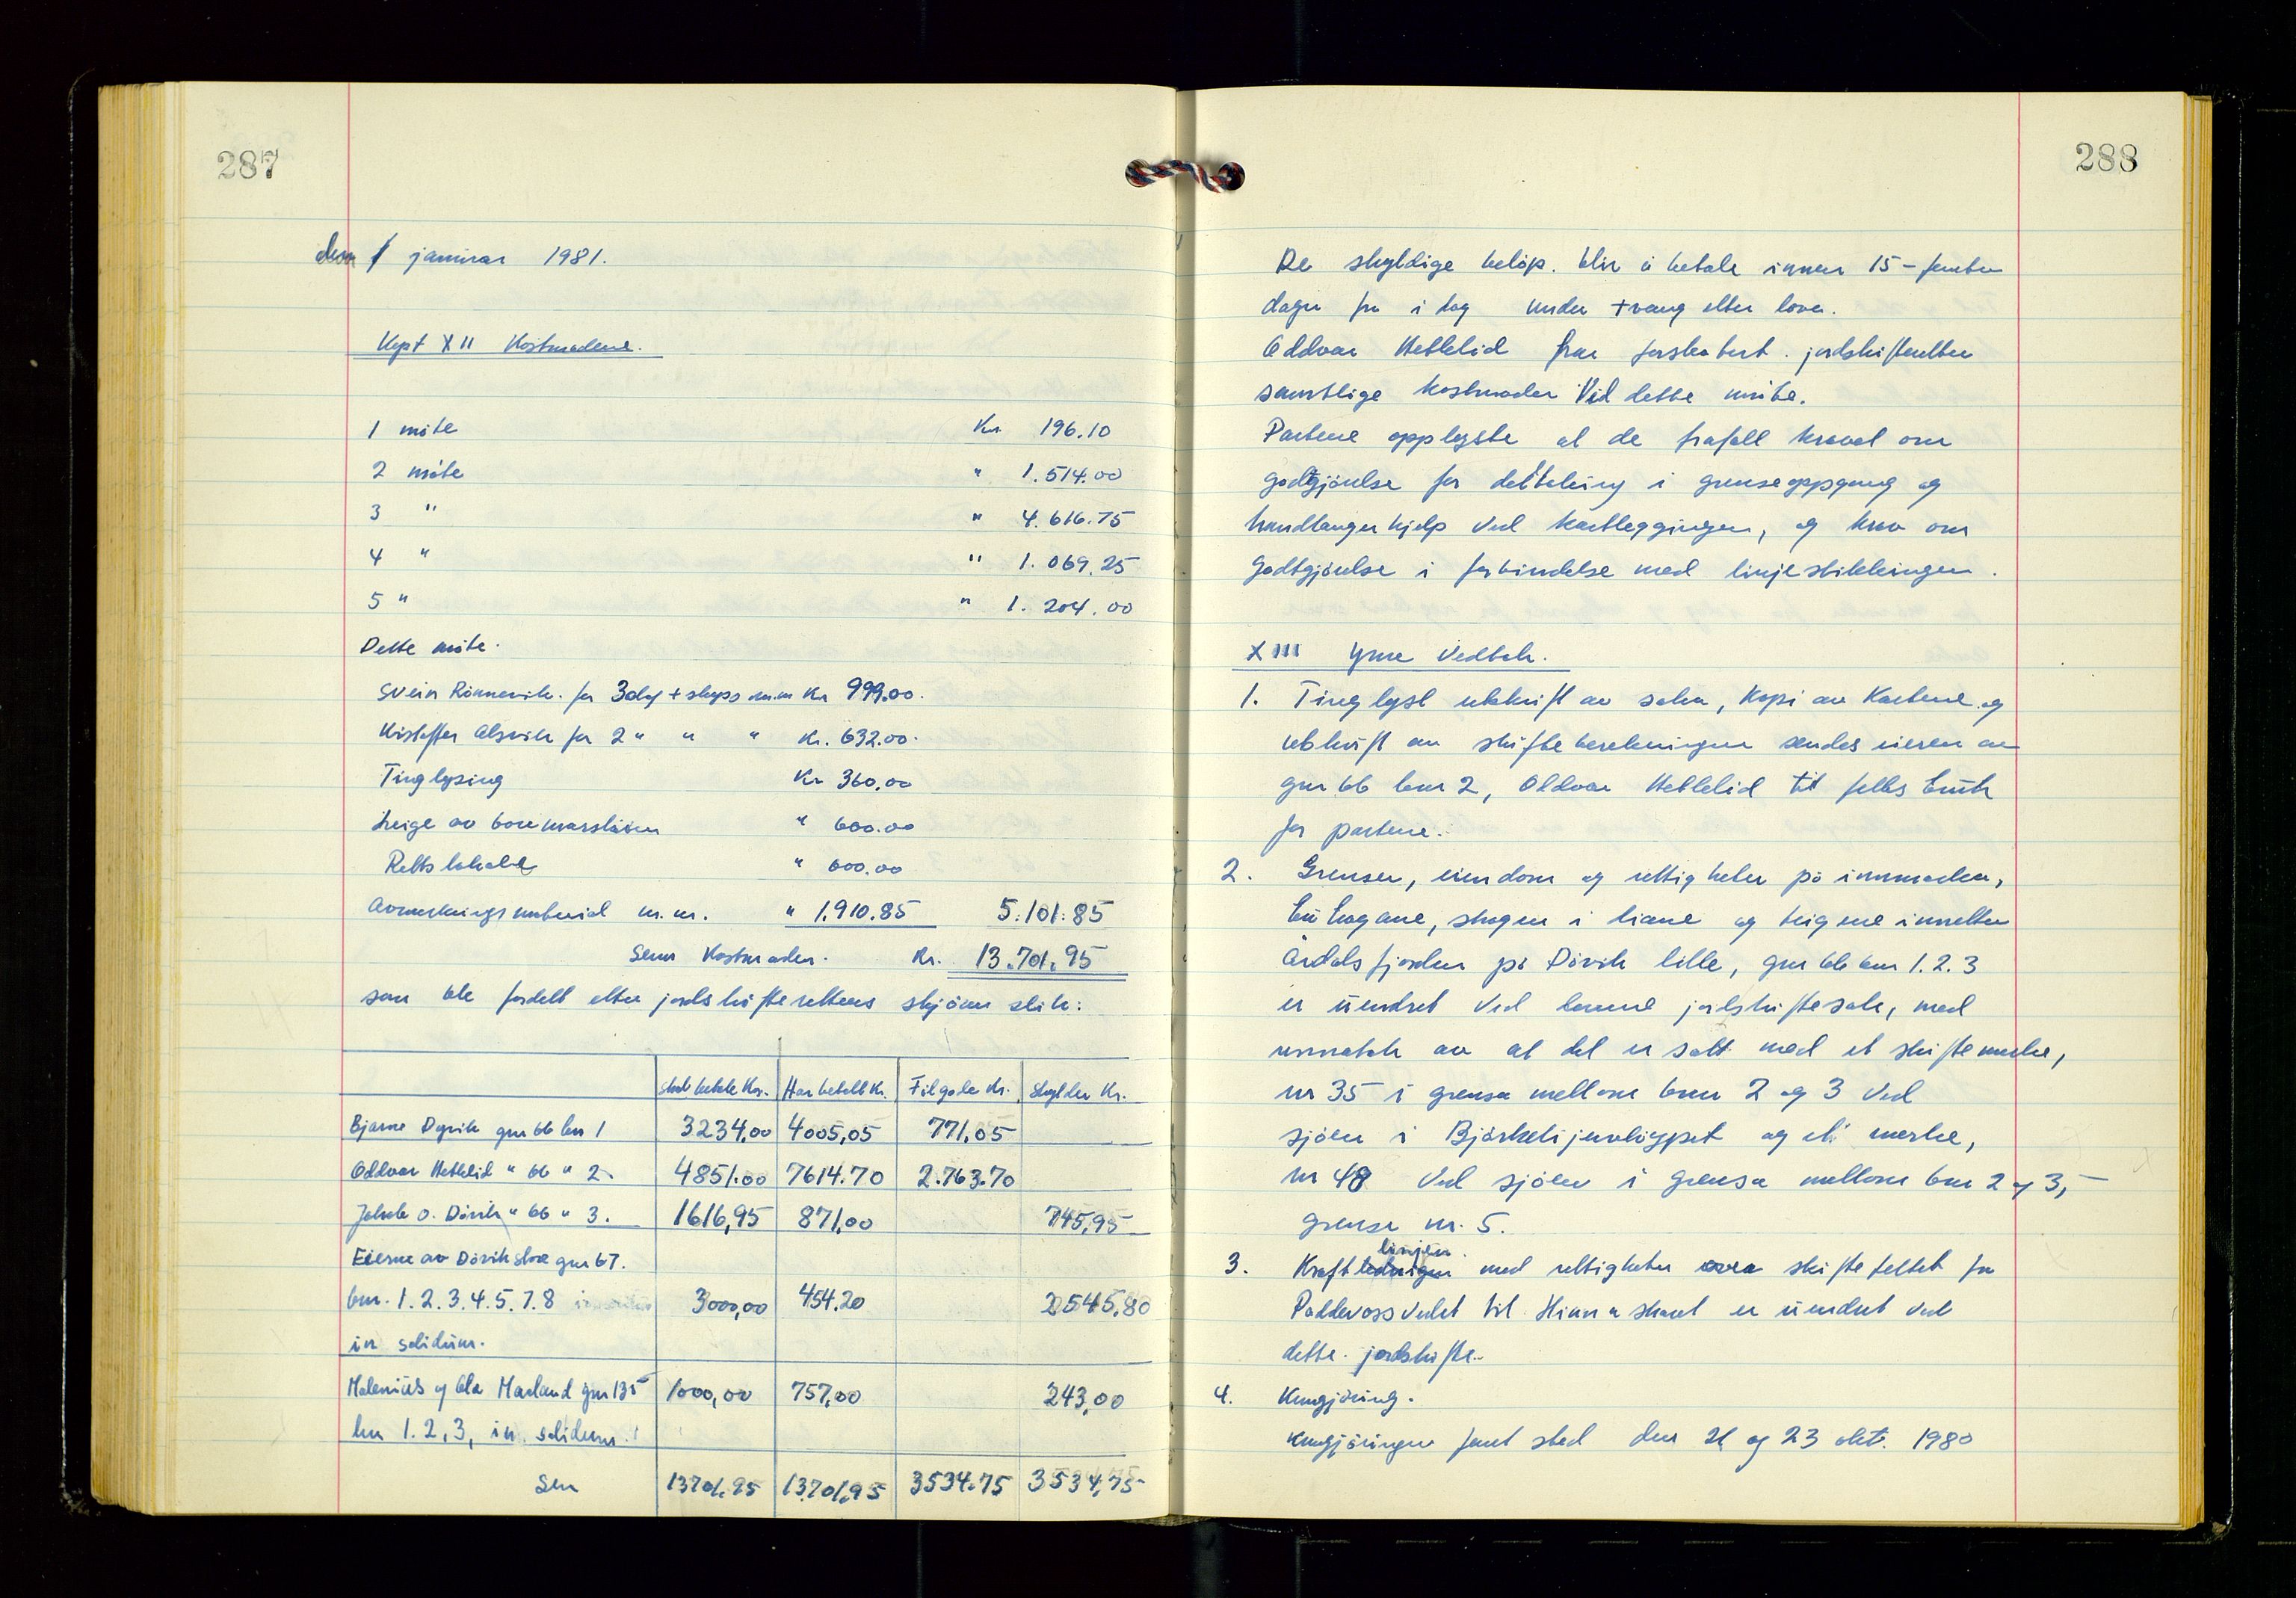 287
den 1 januar 1981.
Kapt XII Kostnadene.
1 møte Kr 196.10
2 møte " 1.514.00
3 " " 4.616.75
4 " " 1.069.25
5 " " 1.204.00
Dette møte.
Svein Rönnevik. for 3 dag + skyss m.m Kr 999.00.
Kristoffer Alsvik for 2 " " " Kr. 632.00.
Tinglysing Kr 360.00
Leige av boremaskinen " 600.00
Rettslokale " 600.00
Avmerkingsmateriel m.m. " 1.910.85 5.101.85
Sum Kostnader. Kr. 13.701.95
som ble fordelt etter jordskifterettens skjönn slik:
Skal betale Kr. Har betalt Kr. Tilgode Kr. Skylder Kr.
Bjarne Dyvik gnr 66 bnr 1 3234,00 4005,05 771,05
Oddvar Hetlelid " 66 " 2. 4851.00 7614.70 2.763.70
Jakob O. Dövik " 66 " 3. 1616,95 871,00 745,95
Eierne av Dövik store gnr 67.
bnr. 1.2.3.4.5.7.8 3000,00 454.20 2545,80
in solidum.
Malenius og Ola Marland gnr 135 1000,00 757,00 243,00
bnr 1.2,3, in solidum.
Sum 13701.95 13701,95 3534.75 3534,75
288
De skyldige beløp. blir å betale innen 15 – femten
dager fra i dag under tvang etter loven.
Oddvar Hetlelid har forskotert. jordskifteretten
samtlige kostnader Ved dette møte.
Partene opplyste at de frafall kravet om
godtgjörelse for deltaking i grenseoppgang og
handlangerhjelp ved kartleggingen, og krav om
godtgjörelse i forbindelse med linjestikkingen.
XIII Ymse Vedtak.
1. Tinglyst utskrift av saka, kopi av Kartene og
utskrift av skifteberekningen sendes eieren av
gnr 66 bnr 2, Oddvar Hetlelid til felles bruk
for partene.
2. Grenser, eiendom og rettigheter på innmarken,
kulturhagane, skogen i liane og teigene innetter
Årdalsfjorden på Dövik lille, gnr 66 bnr 1.2.3
er uendret Ved denne jordskiftesak, med
unnatak av at det er satt ned et skiftemerke,
nr 35 i grensa mellom bnr 2 og 3 ved
sjöen i og eit merke,
nr 48 Ved sjöen i grensa mellom bnr 2 og 3, –
grense nr. 5.
3. Kraftlinjen med rettigheter over skiftefeltet fra
til er uendret ved
dette. jordskifte.
4. Kungjöring.
Kungjöringen fant sted den 21 og 23 okt. 1980